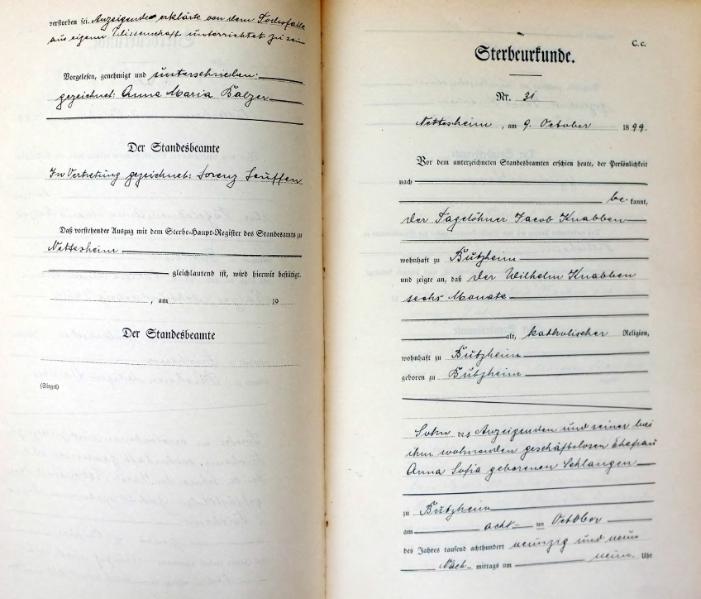 verstorben sei. Anzeigende erklärte von dem Todesfalle
aus eigener Wissenschaft unterrichtet zu sein
Vorgelesen, genehmigt und unterschrieben:
gezeichnet: Anna Maria Balzer
Der Standesbeamte
In Vertretung gezeichnet: Lorenz
Daß vorstehender Auszug mit dem Sterbe-Haupt-Register des Standesamts zu
Nettesheim
gleichlautend ist, wird hiermit bestätigt.
, am 19
Der Standesbeamte
(Siegel)
C. c.
Sterbeurkunde.
Nr. 31
Nettesheim, am 9. October 1899.
Vor dem unterzeichneten Standesbeamten erschien heute, der Persönlichkeit
nach
be kannt,
der Tagelöhner Jacob Knabben
wohnhaft zu Butzheim
und zeigte an, daß der Wilhelm Knabben
sechs Monate
alt, katholischer Religion,
wohnhaft zu Butzheim
geboren zu Butzheim
Sohn des Anzeigenden und seiner bei
ihm wohnenden geschäftslosen Ehefrau
Anna Sofia geborenen Schlangen
zu Butzheim
am acht ten October
des Jahres tausend achthundert neunzig und neun
Nach mittags um neun Uhr